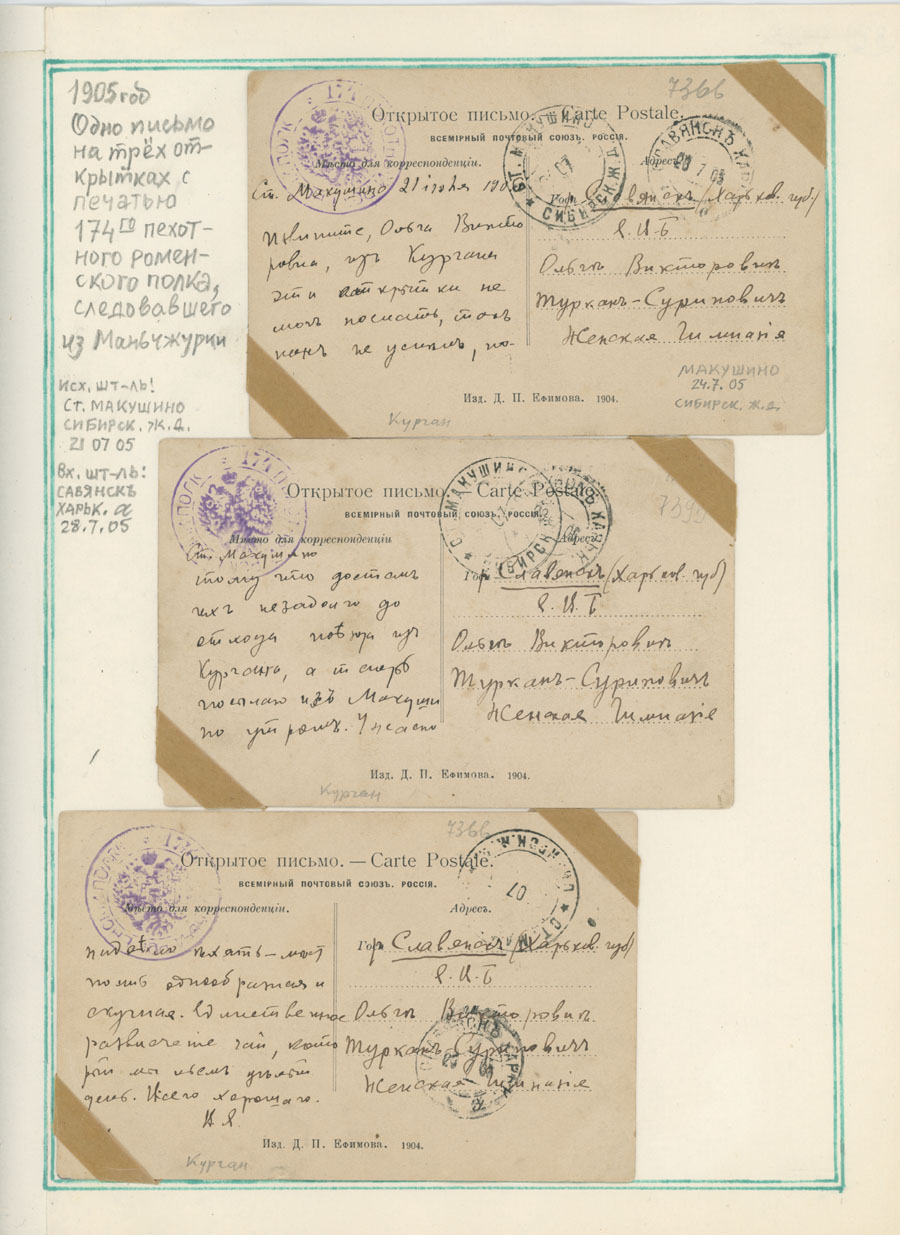 1905 год
Одно письмо
на трёх от-
крытках с
печатью
174го пехот-
ного ромен-
ского полка,
следовавшего
из Маньчжурии
исх. шт-ль!
ст. МАКУШИНО
СИБИРСК. Ж.Д.
21 07 05
Вх. шт-ль:
САВЯНСКЪ
ХАРЬК. а
28.7.05
7366
174 П
ПОЛК
Открытое письмо. — Carte Postale.
ВСЕМІРНЫЙ ПОЧТОВЫЙ СОЮЗЪ. РОССІЯ.
Мѣсто для корреспонденціи.
Адресъ.
СТ. МАКУШИНО
07
СИБИРСК. Ж.Д.
СЛАВЯНСКЪ ХАР
7 05
Ст. Макушино 21 іюля 190
Извините, Ольга Викто
ровна, изъ Кургана
эти открытки не
могъ послать, такъ
какъ не успѣлъ, по-
Гор. Славянскъ (Харьков. губ)
Е. И. Б
Ольгѣ Викторовнѣ
Туркан-Суринович
Женская Гимназія
МАКУШИНО
24.7.05
СИБИРСК. Ж.Д.
Изд. Д. П. Ефимова. 1904.
Курган
174 П
ПОЛК
Открытое письмо. — Carte Postale.
ВСЕМІРНЫЙ ПОЧТОВЫЙ СОЮЗЪ. РОССІЯ.
Мѣсто для корреспонденціи
Адресъ.
МАКУШИНО
07
СИБИРСК
ХАРЬК
Ст. Макушино
тому что досталъ
ихъ незадолго до
отхода поѣзда изъ
Кургана, а теперь
посылаю изъ Макуши
но утромъ. Ужасно
Гор. Славянскъ (Харьков. губ)
Е. И. Б
Ольгѣ Викторовнѣ
Туркан-Суринович
Женская Гимназія
Изд. Д. П. Ефимова. 1904.
Курган
7366
174
ПОЛКА
Открытое письмо. — Carte Postale.
ВСЕМІРНЫЙ ПОЧТОВЫЙ СОЮЗЪ. РОССІЯ.
Мѣсто для корреспонденціи.
Адресъ.
07
надоѣло ѣхать — мѣст
ность однообразная и
скучная. Единственное
развлеченіе чай, кото
рый мы пьемъ цѣлый
день. Всего хорошаго.
Гор. Славянскъ (Харьков. губ)
Е. И. Б
Ольгѣ Викторовнѣ
Туркан-Суринович
Женская Гимназія
ХАРЬК
Изд. Д. П. Ефимова. 1904.
Курган